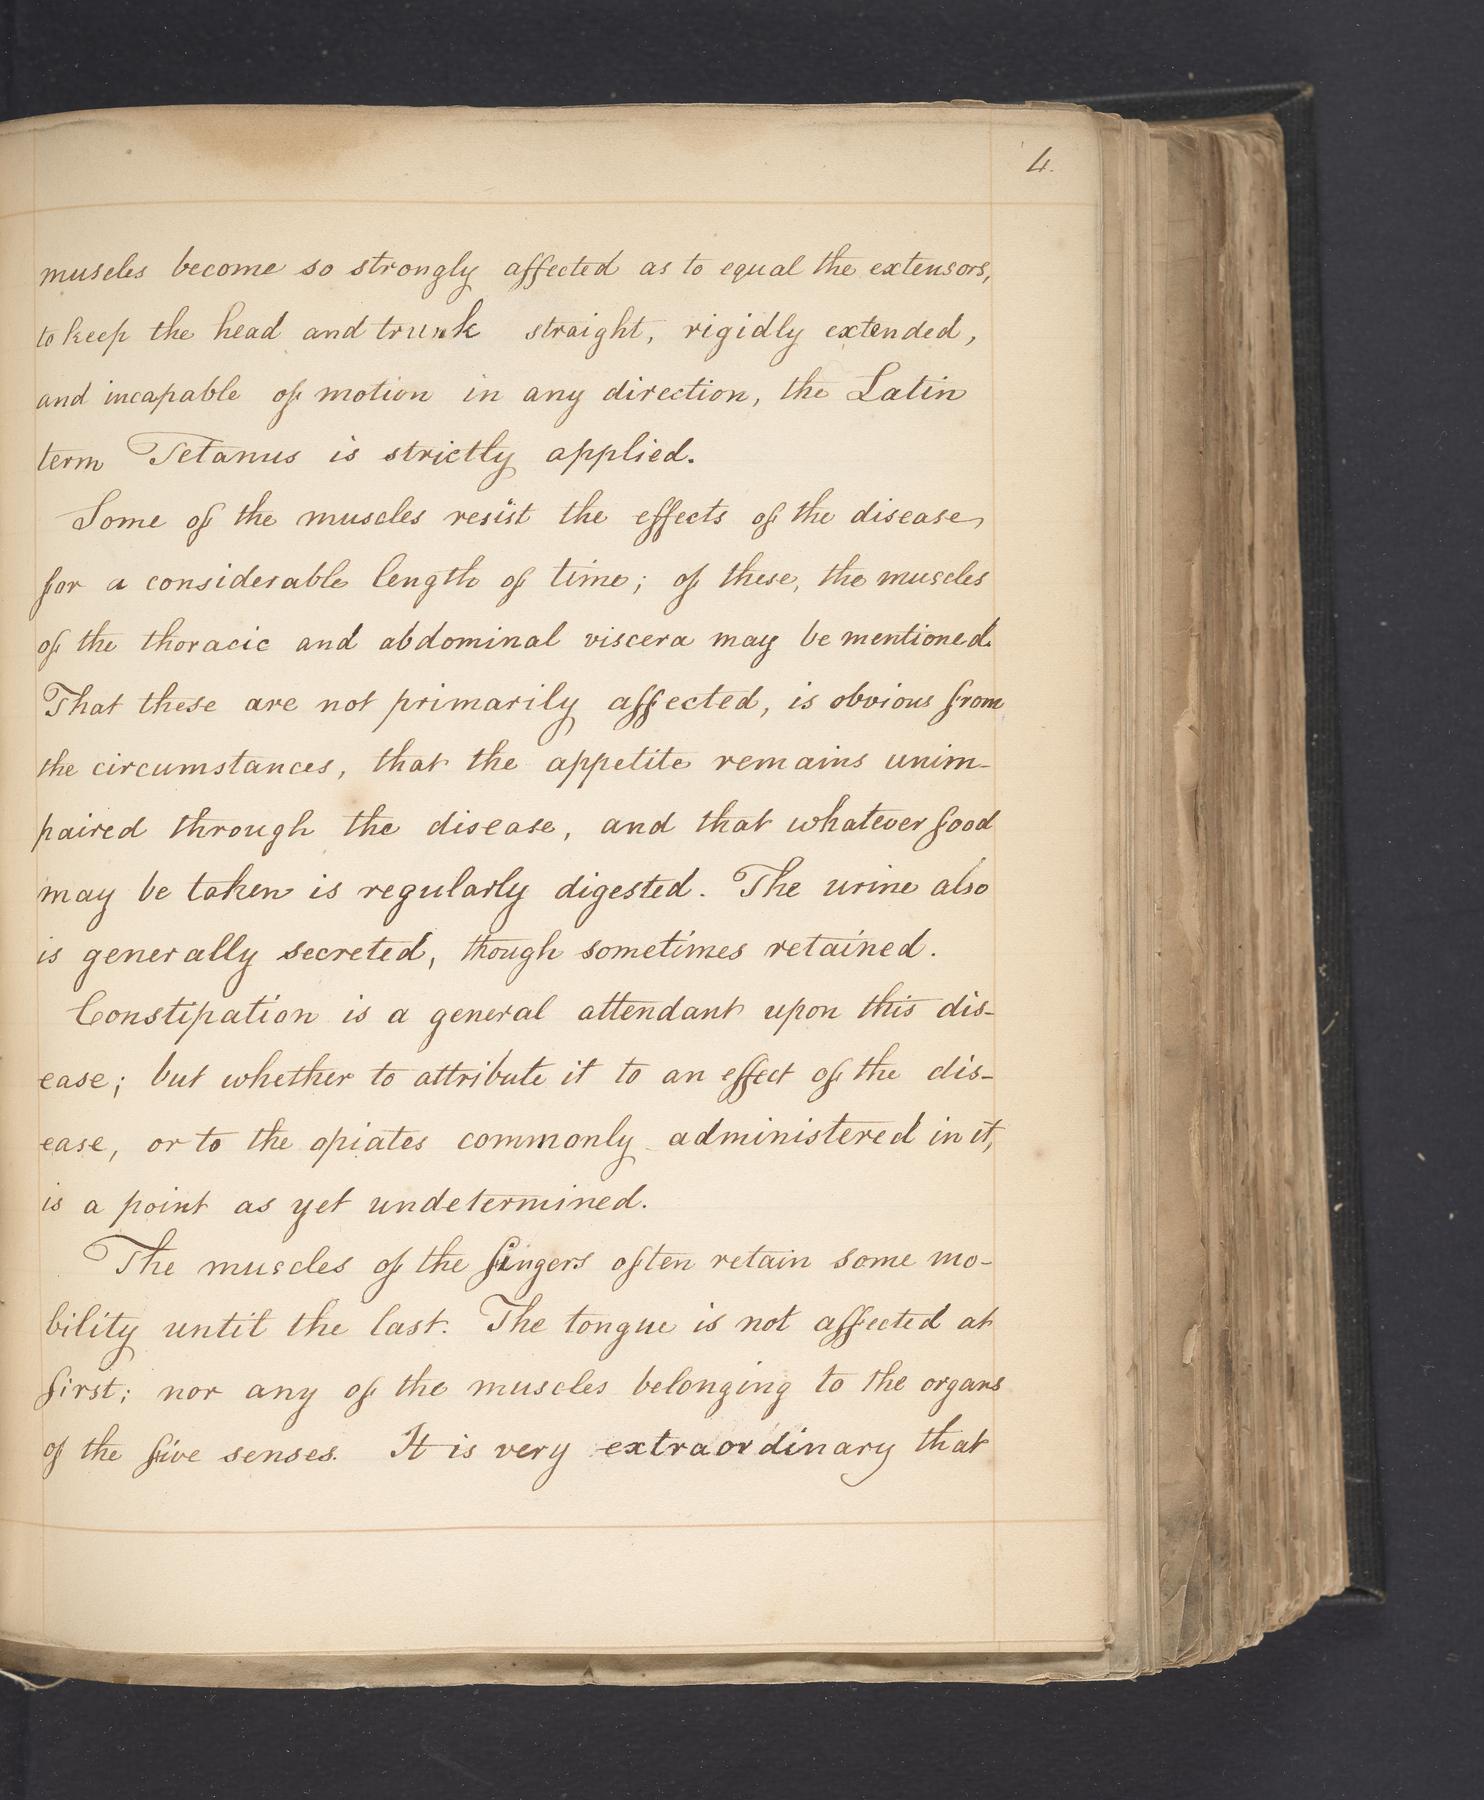 4.
muscles become so strongly affected as to equal the extensors,
to keep the head and trunk straight, rigidly extended,
and incapable of motion in any direction, the Latin
term Tetanus is strictly applied.
Some of the muscles resist the effects of the disease
for a considerable length of time; of these, the muscles
of the thoracic and abdominal viscera may be mentioned.
That these are not primarily affected, is obvious from
the circumstances, that the appetite remains unim-
paired through the disease, and that whatever food
may be taken is regularly digested. The urine also
is generally secreted, though sometimes retained.
Constipation is a general attendant upon this dis-
ease; but whether to attribute it to an effect of the dis-
ease, or to the opiates commonly administered in it,
is a point as yet undetermined.
The muscles of the fingers often retain some mo-
bility until the last. The tongue is not affected at
first; nor any of the muscles belonging to the organs
of the five senses. It is very extraordinary that